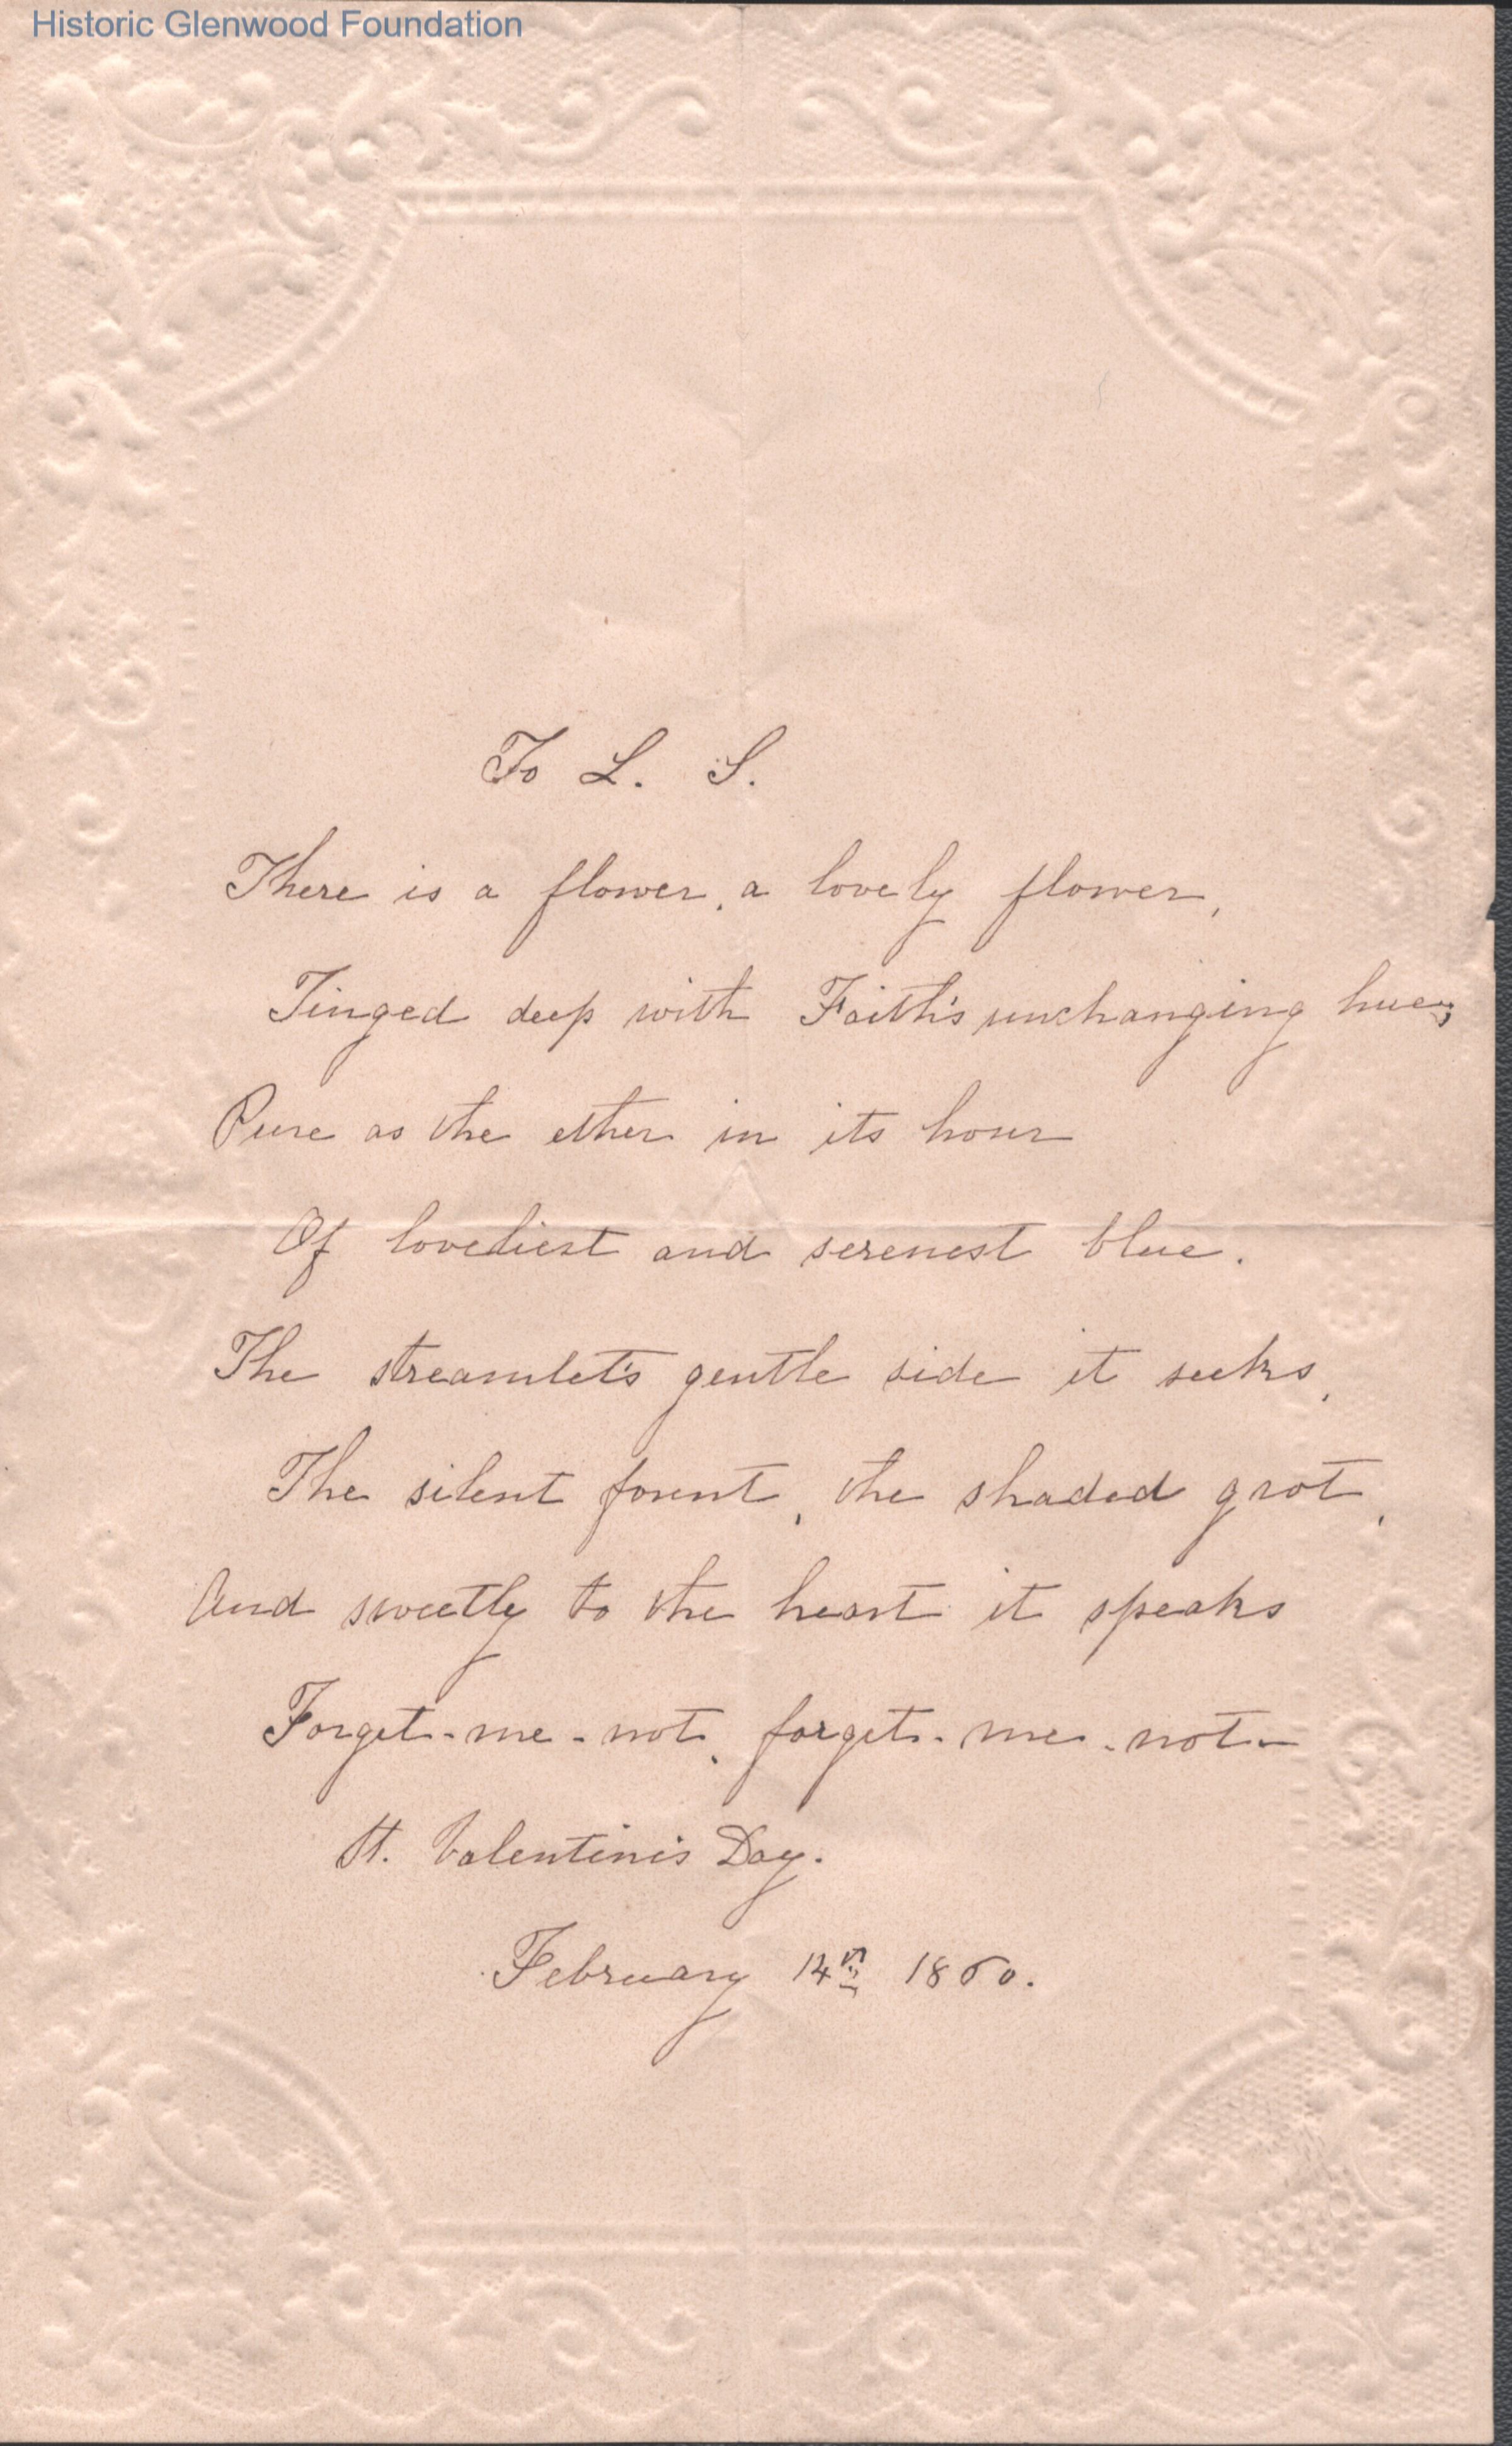 Historic Glenwood Foundation
To L. S.
There is a flower, a lovely flower,
Tinged deep with Faith's unchanging hue;
Pure as the ether in its hour
Of loveliest and serenest blue.
The streamlet's gentle side it seeks,
The silent forest, the shaded grot,
And sweetly to the heart it speaks
Forget-me-not, forget-me-not-
St. Valentine's Day.
February 14th 1860.